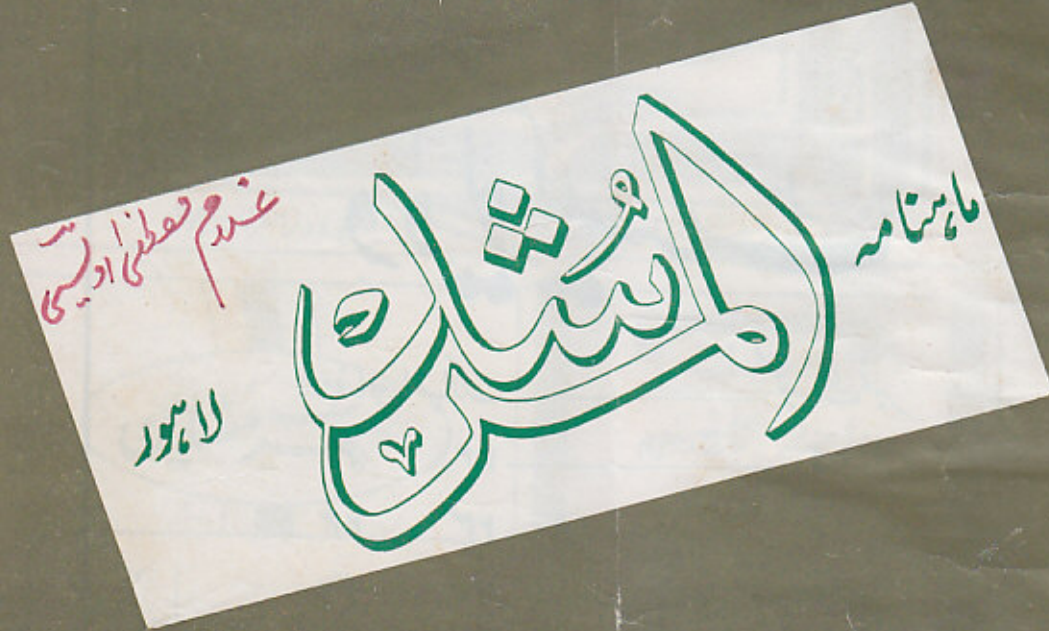 ماہنامہ
المُرشد
لاہور
غلام مصطفیٰ اویسی